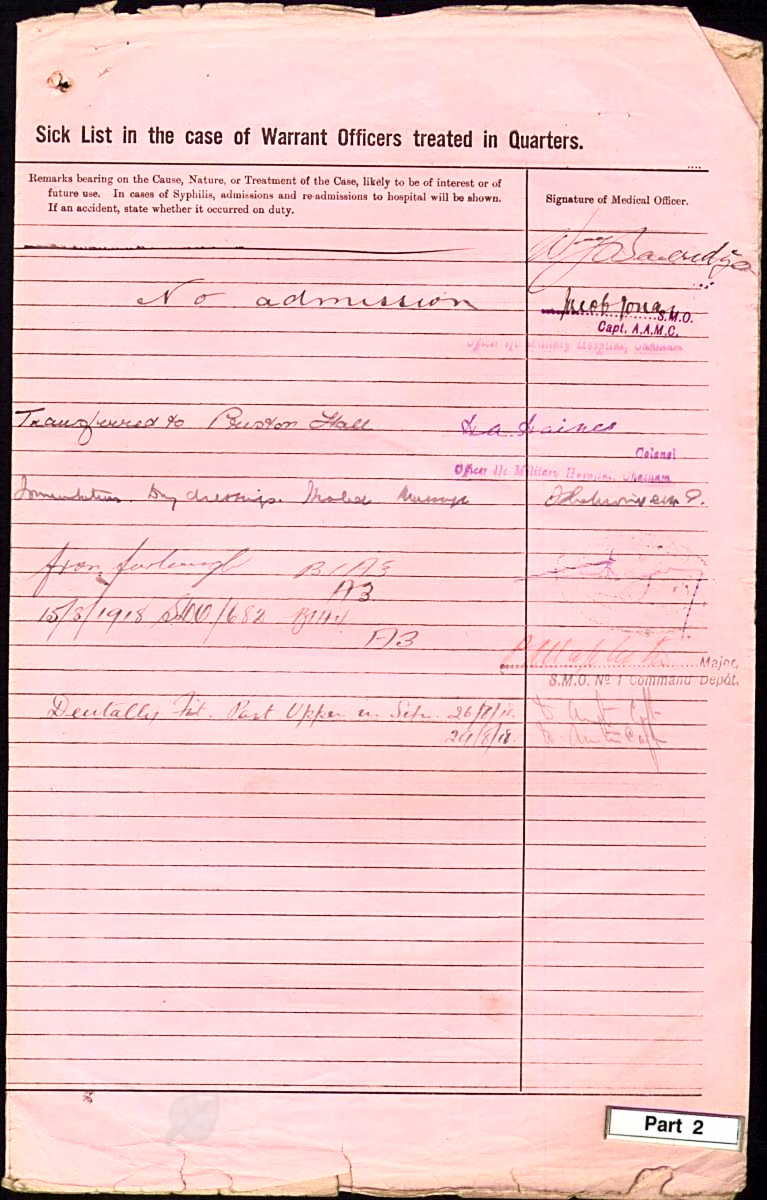 Sick List in the case of Warrant Officers treated in Quarters.
Remarks bearing on the Cause, Nature, or Treatment of the Case, likely to be of interest or of
future use. In cases of Syphilis, admissions and re-admissions to hospital will be shown.
If an accident, state whether it occurred on duty.
Signature of Medical Officer.
No admission
Jacob Jona
S.M.O.
Capt. A.A.M.C.
Officer i/c Military Hospital, Chatham
Transferred to Hall
Colonel
Officer i/c Military Hospital, Chatham
Dry dressings. Massage
from furlough B1A3
A3
15/8/1918 /682 B1A4
A3
Major,
S.M.O. No 1 Command Depôt.
Dentally Fit. Part Upper 26/8/18.
24/8/18.
Part 2